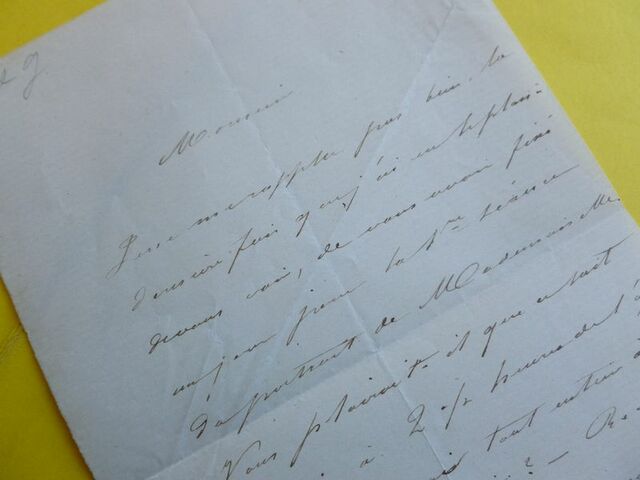 Monsieur
Je ne me rappelle pas bien la
dernière fois que j'ai eu le plai-
de vous voir, de vous avoir fixé
un jour pour la 1re séance
du portrait de Mademoiselle
Vous plairait-il que ce fut
à 2 h ½ heures de l'a
tout entier à
? — Re